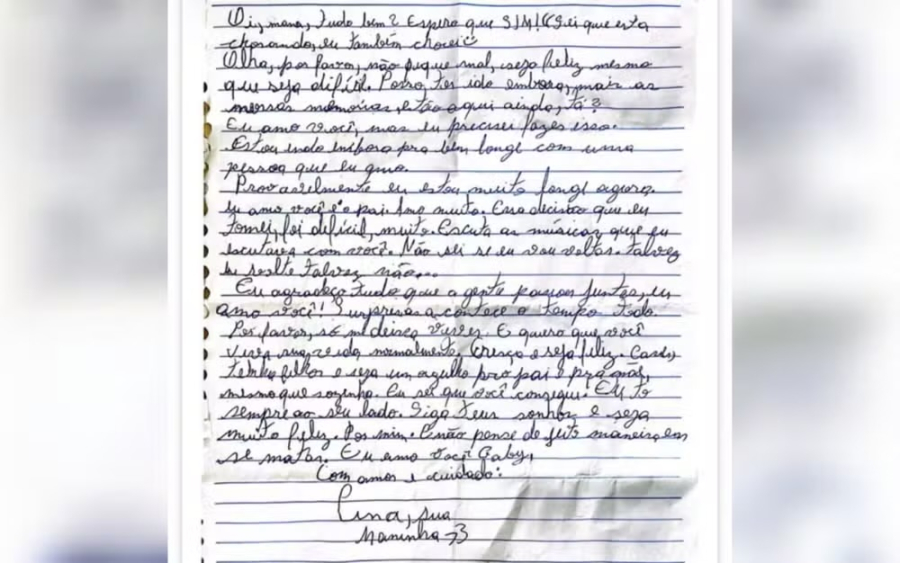 Oi, mana, tudo bem? Espero que SIM! Sei que esta
chorando, eu também chorei
Olha, por favor, não fique mal, seja feliz mesmo
que seja difícil. Posso ter ido embora, mais as
nossas memórias estão aqui ainda, tá?
Eu amo você, mas eu precisei fazer isso.
Estou indo embora pra bem longe com uma
pessoa que eu amo.
Provavelmente eu estou muito longe agora.
Eu amo você e o pai. Amo muito. Essa decisão que eu
tomei, foi difícil, muito. Escuta as músicas que eu
escutava com você. Não sei se eu vou voltar. Talvez
eu volte talvez não...
Eu agradeço tudo que a gente passou juntas, eu
amo você! Surpresas acontece o tempo todo.
Por favor, só me deixa viver. E quero que você
viva sua vida normalmente. Cresça e seja feliz. Case,
tenha filhos e seja um orgulho pro pai e pra mãe,
mesmo que sozinha. Eu sei que você consegue. Eu to
sempre ao seu lado. Siga teus sonhos e seja
muito feliz. Por mim. E não pense de jeito maneira em
se matar. Eu amo você Gaby,
Com amor e cuidado:
sua
Maninha <3